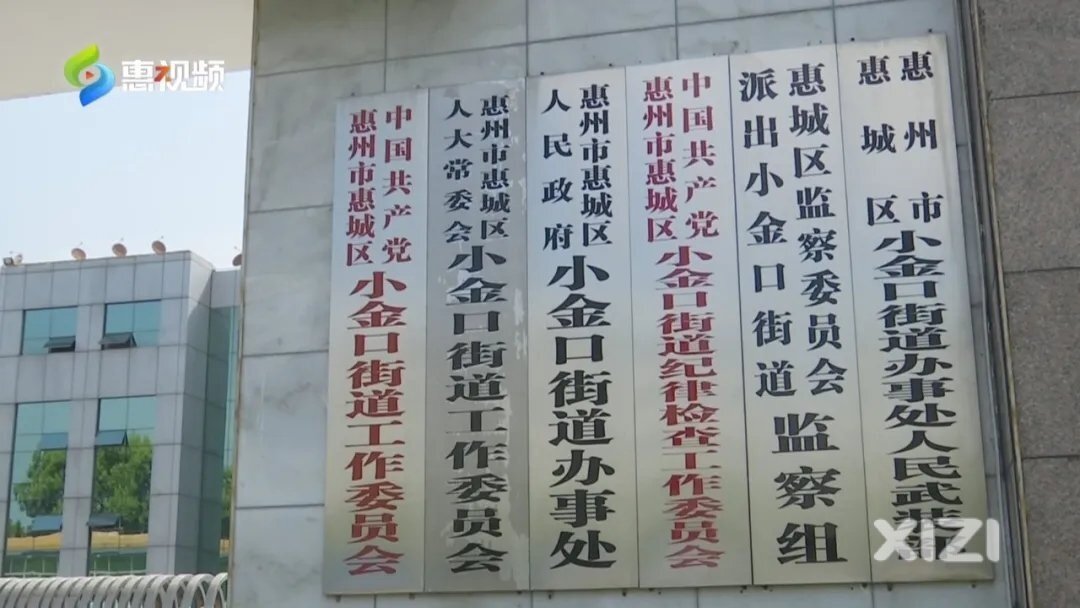 惠视频
中国共产党
惠州市惠城区
小金口街道工作委员会
惠州市惠城区
人大常委会
小金口街道工作委员会
惠州市惠城区
人民政府
小金口街道办事处
中国共产党
惠州市惠城区
小金口街道纪律检查工作委员会
惠城区监察委员会
派出小金口街道
监察组
惠州市
惠城区
小金口街道办事处人民武装部
XIZI